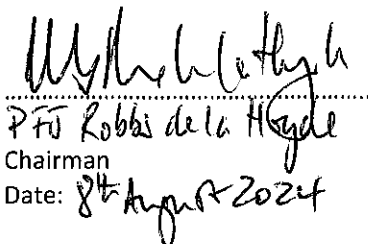 PFJ Robbi de la Hoyde
Chairman
Date: 8th August 2024